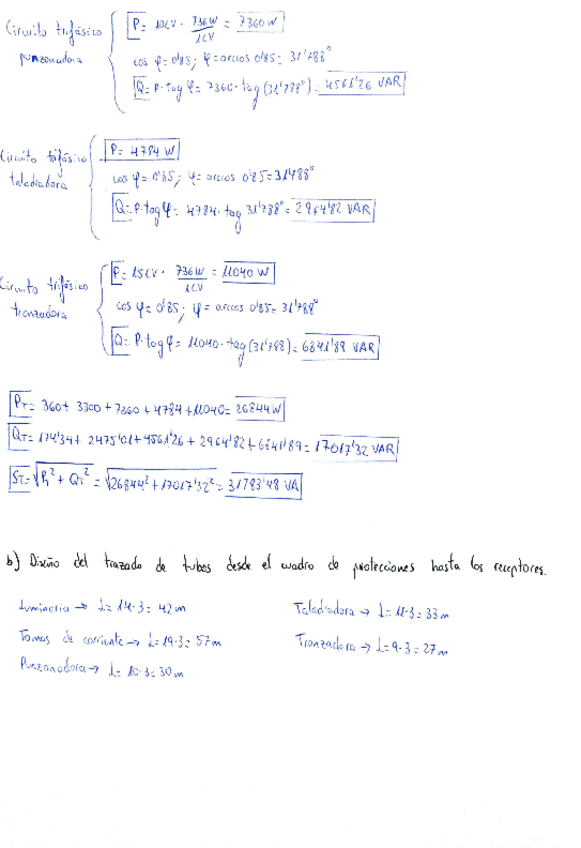 Circuito trifásico punzonadora
P = 10CV · 736W/1CV = 7360 W
cos φ = 0'85; φ = arccos 0'85 = 31'788°
Q = P · tag φ = 7360 · tag (31'788°) = 4561'26 VAR
Circuito trifásico taladradora
P = 4784 W
cos φ = 0'85; φ = arccos 0'85 = 31'788°
Q = P · tag φ = 4784 · tag 31'788° = 2964'82 VAR
Circuito trifásico tronzadora
P = 15CV · 736W/1CV = 11040 W
cos φ = 0'85; φ = arccos 0'85 = 31'788°
Q = P · tag φ = 11040 · tag (31'788) = 6841'89 VAR
PT = 360 + 3300 + 7360 + 4784 + 11040 = 26844 W
QT = 174'34 + 2475'01 + 4561'26 + 2964'82 + 6841'89 = 17017'32 VAR
ST = √PT² + QT² = √26844² + 17017'32² = 31783'48 VA
b) Diseño del trazado de tubos desde el cuadro de protecciones hasta los receptores.
Luminaria → L = 14·3 = 42 m
Tomas de corriente → L = 19·3 = 57 m
Punzonadora → L = 10·3 = 30 m
Taladradora → L = 11·3 = 33 m
Tronzadora → L = 9·3 = 27 m